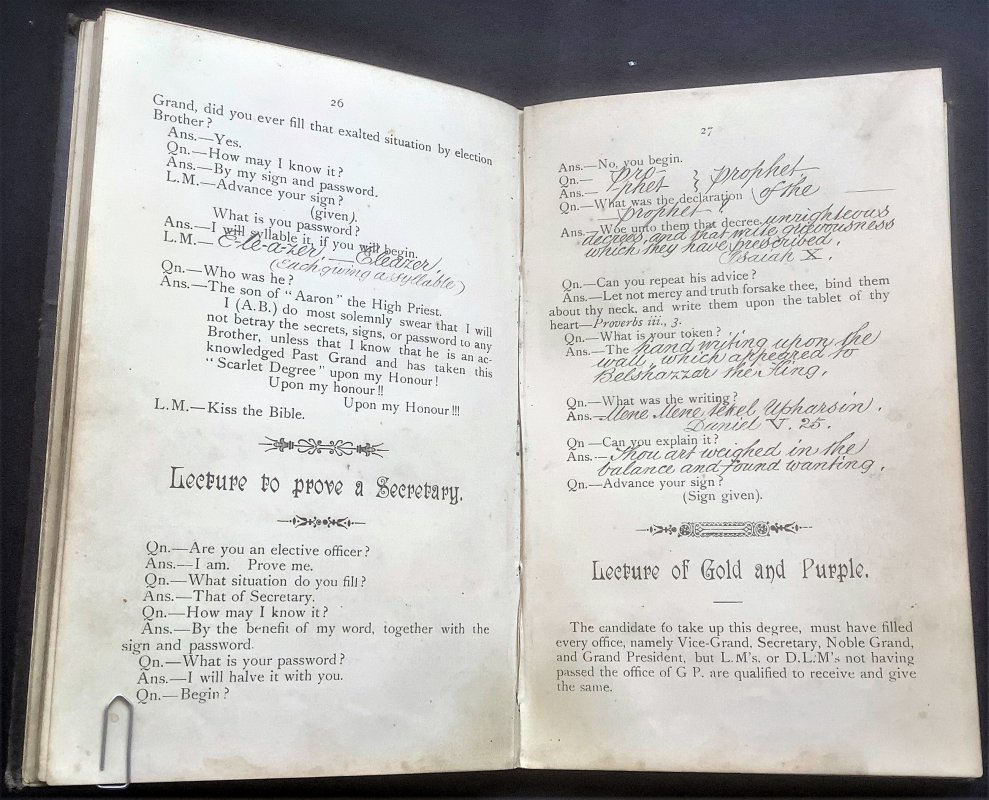 26
Grand, did you ever fill that exalted situation by election
Brother?
Ans.—Yes.
Qn.—How may I know it?
Ans.—By my sign and password.
L.M.—Advance your sign?
(given).
What is you password?
Ans.—I will syllable it, if you will begin.
L.M.— E-le-a-zer, — Eleazer.
(Each giving a syllable)
Qn.—Who was he?
Ans.—The son of "Aaron" the High Priest.
I (A.B.) do most solemnly swear that I will
not betray the secrets, signs, or password to any
Brother, unless that I know that he is an ac-
knowledged Past Grand and has taken this
"Scarlet Degree" upon my Honour!
Upon my honour!!
Upon my Honour!!!
L.M.—Kiss the Bible.
Lecture to prove a Secretary.
Qn.—Are you an elective officer?
Ans.—I am. Prove me.
Qn.—What situation do you fill?
Ans.—That of Secretary.
Qn.—How may I know it?
Ans.—By the benefit of my word, together with the
sign and password.
Qn.—What is your password?
Ans.—I will halve it with you.
Qn.—Begin?
27
Ans.—No, you begin.
Qn.— pro-
Ans.— phet } prophet
Qn.—What was the declaration of the
prophet?
Ans.—Woe unto them that decree unrighteous
decrees, and that write grievousness
which they have prescribed.
Isaiah X.
Qn.—Can you repeat his advice?
Ans.—Let not mercy and truth forsake thee, bind them
about thy neck, and write them upon the tablet of thy
heart—Proverbs iii., 3.
Qn.—What is your token?
Ans.—The hand writing upon the
wall, which appeared to
Belshazzar the King.
Qn.—What was the writing?
Ans.—Mene Mene tekel Upharsin.
Daniel V. 25.
Qn—Can you explain it?
Ans.—Thou art weighed in the
balance and found wanting.
Qn.—Advance your sign?
(Sign given).
Lecture of Gold and Purple.
The candidate to take up this degree, must have filled
every office, namely Vice-Grand, Secretary, Noble Grand,
and Grand President, but L.M's. or D.L.M's not having
passed the office of G P. are qualified to receive and give
the same.